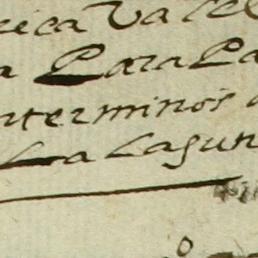 rica Va cel
a Para Pa
nterminos
La Lagun